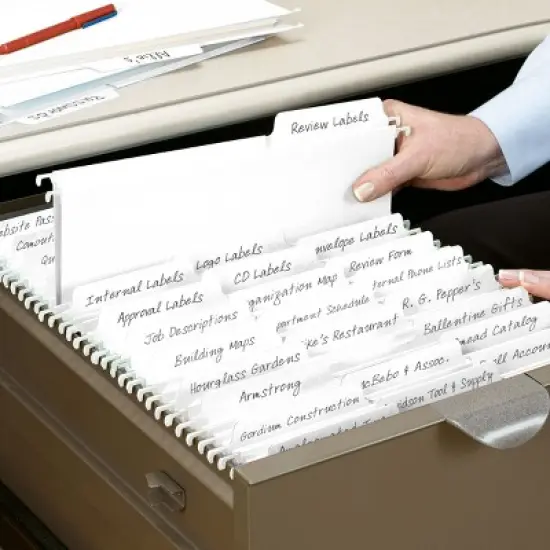 Alfie's
Review Labels
ebsite Pas
Internal Labels
Logo Labels
nvelope Labels
Approval Labels
CD Labels
Review Form
Job Descriptions
ganization Map
ternal Phone Lists
Building Maps
partment Schedule
R. G. Pepper's
Hourglass Gardens
ke's Restaurant
Ballentine Gifts
Armstrong
cBebo & Assoc.
mead Catalog
Gordium Construction
idson Tool & Supply
ll Account